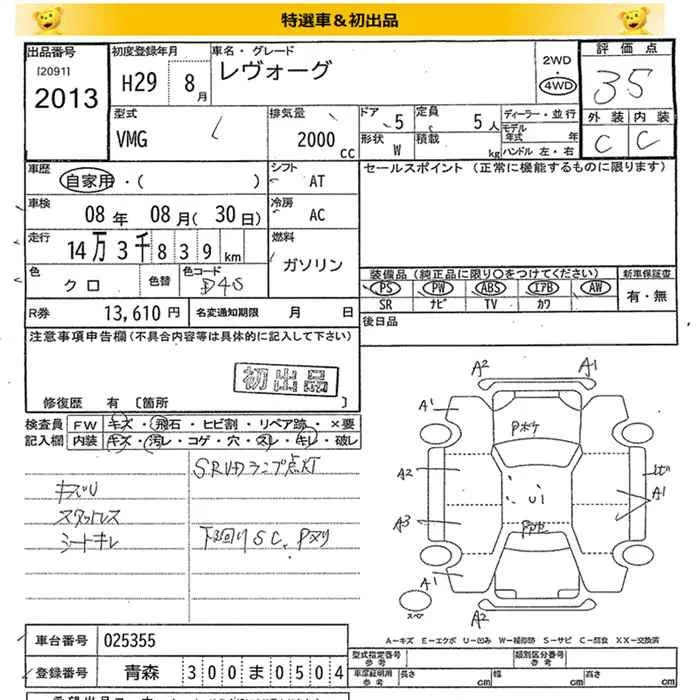 特選車&初出品
出品番号
(2091)
2013
初度登録年月
H29 8月
車名・グレード
レヴォーグ
2WD
・
4WD
評価点
35
外装 内装
C C
型式
VMG
排気量
2000 cc
ドア
5
定員
5人
形状
W
積載
kg
ディーラー・並行
モデル年式 年
ハンドル 左・右
車歴
自家用・( )
シフト
AT
セールスポイント (正常に機能するものに限ります)
車検
08年 08月(30日)
冷房
AC
走行
14万3千839km
燃料
ガソリン
色
クロ
色替
色コード
D4S
装備品(純正品に限り〇をつけてください)
新車保証書
PS PW ABS エアB AW
SR ナビ TV カワ
有・無
R券 13,610円
名変通知期限 月 日
後日品
注意事項申告欄(不具合内容等は具体的に記入して下さい)
初出品
修復歴 有 〔箇所 〕
検査員記入欄
FW キズ・飛石・ヒビ割・リペア跡・×要
内装 キズ・汚レ・コゲ・穴・スレ・キレ・破レ
SRVDランプ点灯
スタットレス
シートキレ
下回りSC、Pヌリ
A2 A1
A1
Pボケ
A2
A1
U1
A3
A1
A2
A-キズ E-エクボ U-凹み W-補修跡 S-サビ C-腐食 XX-交換済
車台番号 025355
型式指定番号 参考
類別区分番号 参考
登録番号 青森 300ま0504
車庫証明用 参考 長さ cm 幅 cm 高さ cm